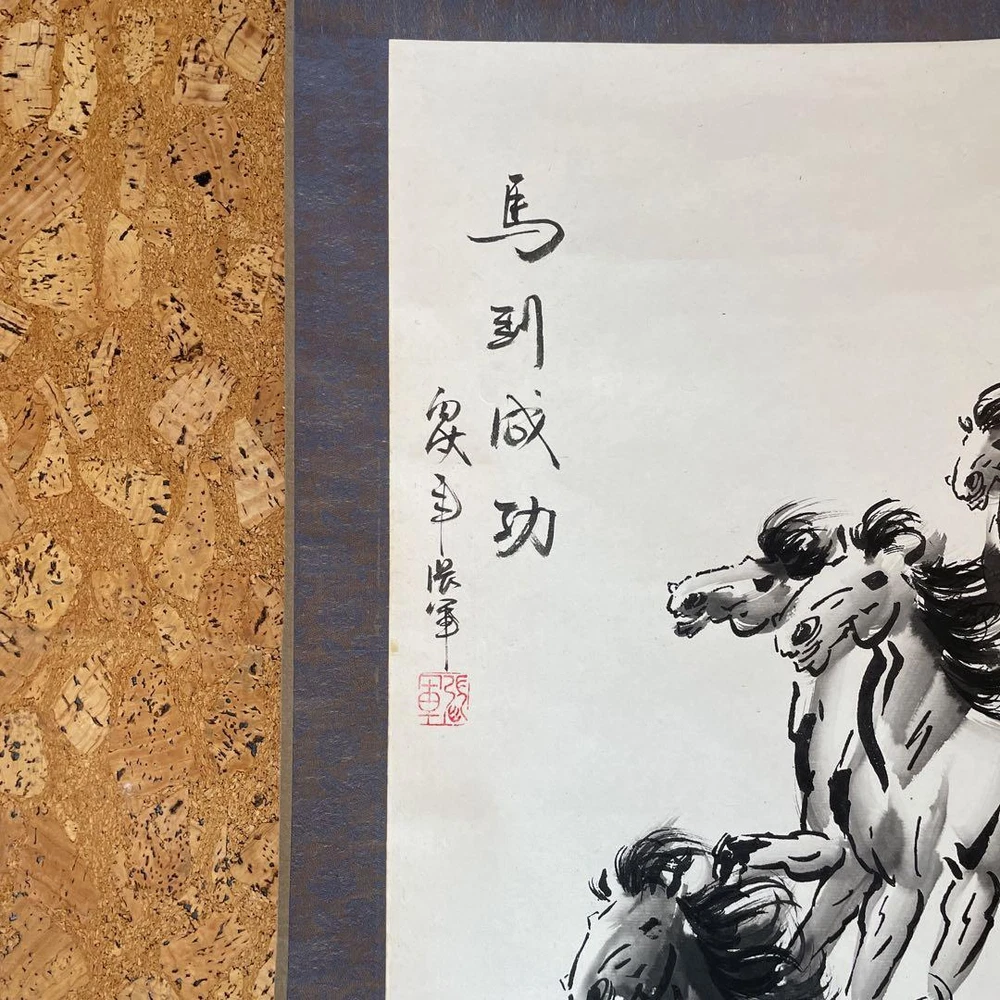 馬到成功
年張軍
張軍